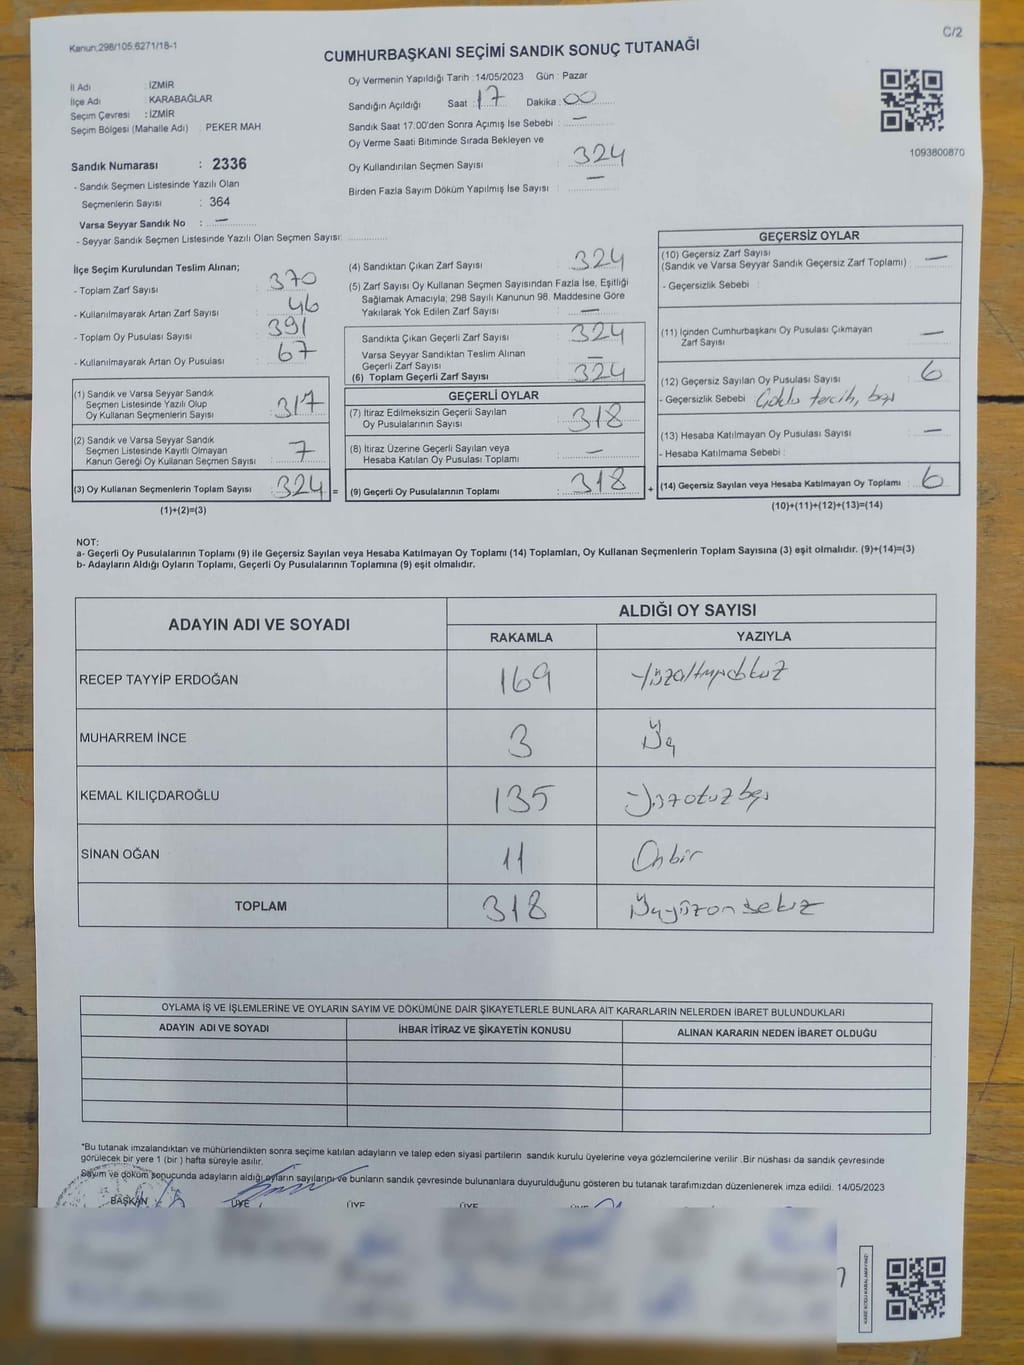 Kanun:298/105.6271/18-1
C/2
CUMHURBAŞKANI SEÇİMİ SANDIK SONUÇ TUTANAĞI
İl Adı : İZMİR
İlçe Adı : KARABAĞLAR
Seçim Çevresi : İZMİR
Seçim Bölgesi (Mahalle Adı) : PEKER MAH
Sandık Numarası : 2336
- Sandık Seçmen Listesinde Yazılı Olan
Seçmenlerin Sayısı : 364
Varsa Seyyar Sandık No : —
- Seyyar Sandık Seçmen Listesinde Yazılı Olan Seçmen Sayısı:
Oy Vermenin Yapıldığı Tarih : 14/05/2023 Gün : Pazar
Sandığın Açıldığı Saat : 17 Dakika : 00
Sandık Saat 17:00'den Sonra Açımış İse Sebebi : —
Oy Verme Saati Bitiminde Sırada Bekleyen ve
Oy Kullandırılan Seçmen Sayısı : 324
Birden Fazla Sayım Döküm Yapılmış İse Sayısı : —
1093800870
İlçe Seçim Kurulundan Teslim Alınan;
- Toplam Zarf Sayısı : 370
- Kullanılmayarak Artan Zarf Sayısı : 46
- Toplam Oy Pusulası Sayısı : 391
- Kullanılmayarak Artan Oy Pusulası : 67
(1) Sandık ve Varsa Seyyar Sandık
Seçmen Listesinde Yazılı Olup
Oy Kullanan Seçmenlerin Sayısı : 317
(2) Sandık ve Varsa Seyyar Sandık
Seçmen Listesinde Kayıtlı Olmayan
Kanun Gereği Oy Kullanan Seçmen Sayısı : 7
(3) Oy Kullanan Seçmenlerin Toplam Sayısı : 324 =
(1)+(2)=(3)
(4) Sandıktan Çıkan Zarf Sayısı : 324
(5) Zarf Sayısı Oy Kullanan Seçmen Sayısından Fazla İse, Eşitliği
Sağlamak Amacıyla; 298 Sayılı Kanunun 98. Maddesine Göre
Yakılarak Yok Edilen Zarf Sayısı : —
Sandıkta Çıkan Geçerli Zarf Sayısı : 324
Varsa Seyyar Sandıktan Teslim Alınan
Geçerli Zarf Sayısı : —
(6) Toplam Geçerli Zarf Sayısı : 324
GEÇERLİ OYLAR
(7) İtiraz Edilmeksizin Geçerli Sayılan
Oy Pusulalarının Sayısı : 318
(8) İtiraz Üzerine Geçerli Sayılan veya
Hesaba Katılan Oy Pusulası Toplamı : —
(9) Geçerli Oy Pusulalarının Toplamı : 318 +
GEÇERSİZ OYLAR
(10) Geçersiz Zarf Sayısı
(Sandık ve Varsa Seyyar Sandık Geçersiz Zarf Toplamı) : —
- Geçersizlik Sebebi :
(11) İçinden Cumhurbaşkanı Oy Pusulası Çıkmayan
Zarf Sayısı : —
(12) Geçersiz Sayılan Oy Pusulası Sayısı : 6
- Geçersizlik Sebebi : Çoklu tercih, boş
(13) Hesaba Katılmayan Oy Pusulası Sayısı : —
- Hesaba Katılmama Sebebi :
(14) Geçersiz Sayılan veya Hesaba Katılmayan Oy Toplamı : 6
(10)+(11)+(12)+(13)=(14)
NOT:
a- Geçerli Oy Pusulalarının Toplamı (9) ile Geçersiz Sayılan veya Hesaba Katılmayan Oy Toplamı (14) Toplamları, Oy Kullanan Seçmenlerin Toplam Sayısına (3) eşit olmalıdır. (9)+(14)=(3)
b- Adayların Aldığı Oyların Toplamı, Geçerli Oy Pusulalarının Toplamına (9) eşit olmalıdır.
ADAYIN ADI VE SOYADI
ALDIĞI OY SAYISI
RAKAMLA YAZIYLA
RECEP TAYYİP ERDOĞAN 169 Yüzaltmışdokuz
MUHARREM İNCE 3 Üç
KEMAL KILIÇDAROĞLU 135 Yüzotuzbeş
SİNAN OĞAN 11 Onbir
TOPLAM 318 Üçyüzonsekiz
OYLAMA İŞ VE İŞLEMLERİNE VE OYLARIN SAYIM VE DÖKÜMÜNE DAİR ŞİKAYETLERLE BUNLARA AİT KARARLARIN NELERDEN İBARET BULUNDUKLARI
ADAYIN ADI VE SOYADI İHBAR İTİRAZ VE ŞİKAYETİN KONUSU ALINAN KARARIN NEDEN İBARET OLDUĞU
"Bu tutanak imzalandıktan ve mühürlendikten sonra seçime katılan adayların ve talep eden siyasi partilerin sandık kurulu üyelerine veya gözlemcilerine verilir .Bir nüshası da sandık çevresinde
görülecek bir yere 1 (bir ) hafta süreyle asılır.
Sayım ve döküm sonucunda adayların aldığı oyların sayılarını ve bunların sandık çevresinde bulunanlara duyurulduğunu gösteren bu tutanak tarafımızdan düzenlenerek imza edildi. 14/05/2023
BAŞKAN ÜYE ÜYE ÜYE ÜYE